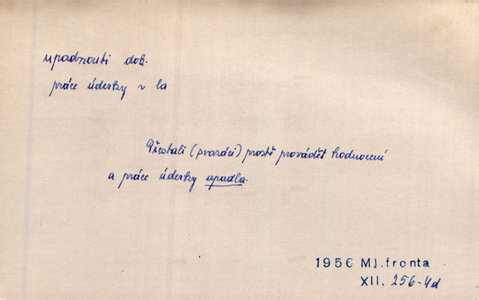 upadnouti dok.
práce úderky v la
Přestali (svazáci) prostě provádět hodnocení
a práce úderky upadla.
1956 Ml.fronta
XII, 256-4d